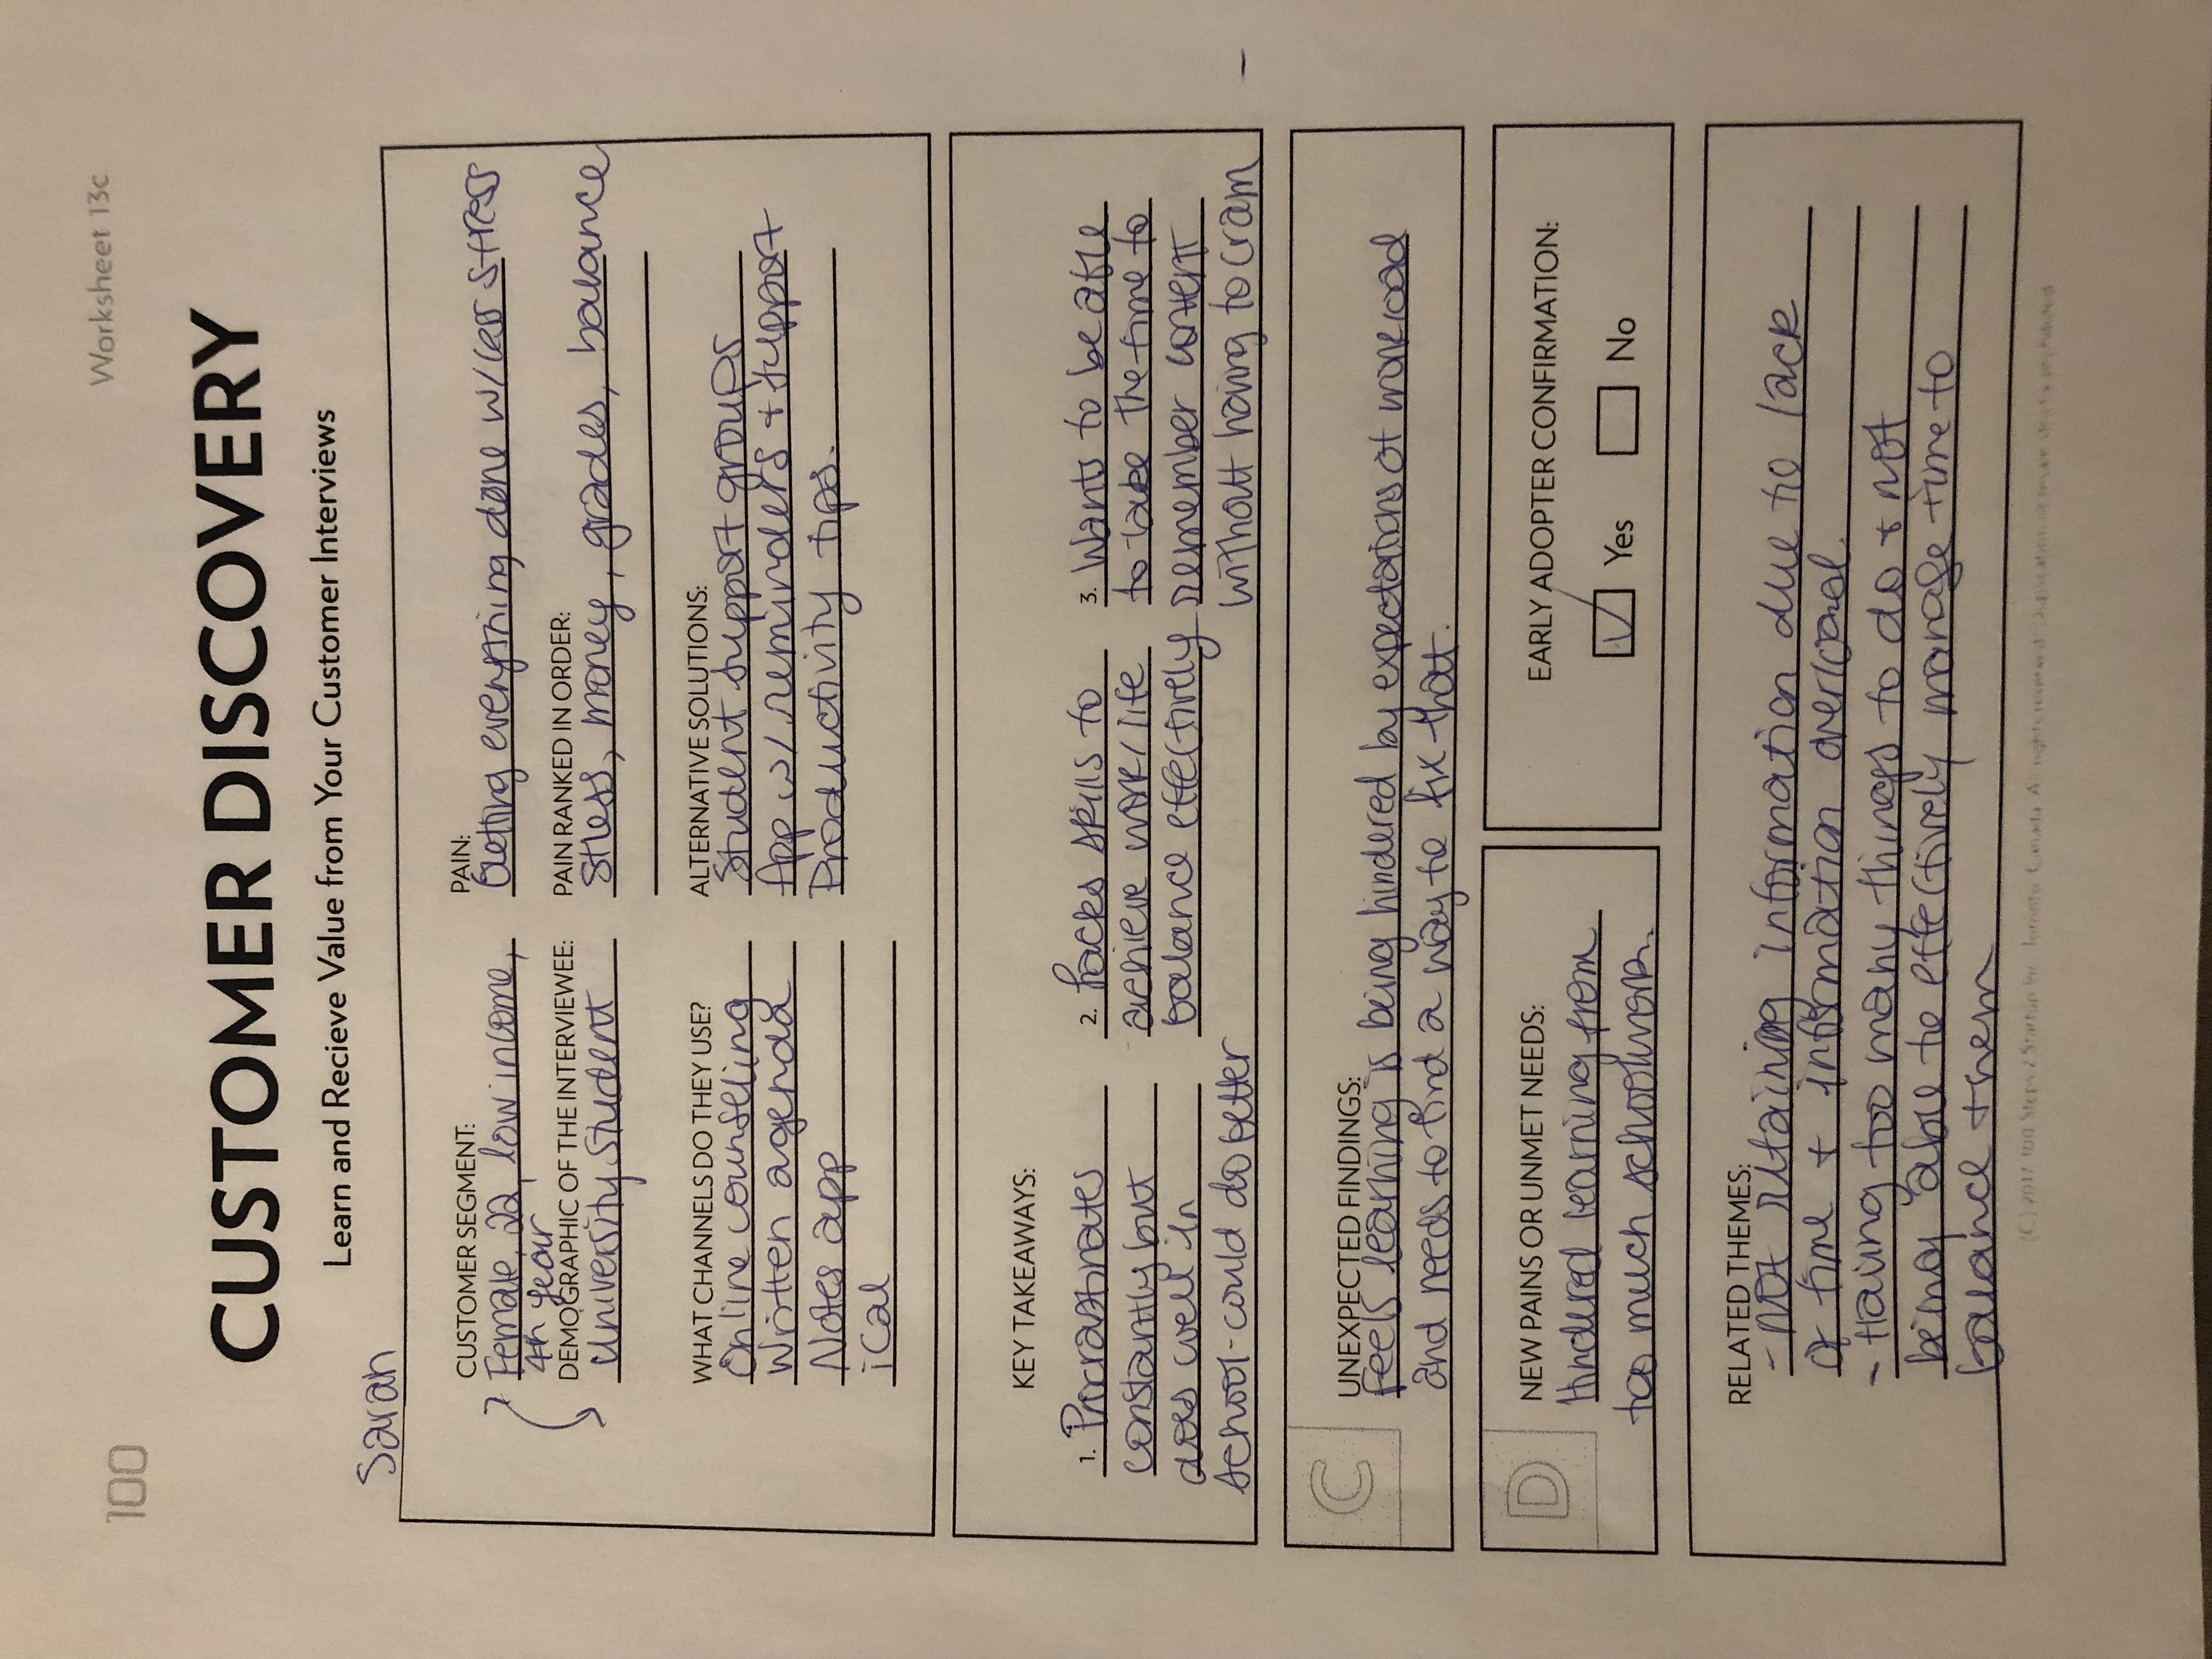 100
Worksheet 13c
CUSTOMER DISCOVERY
Learn and Recieve Value from Your Customer Interviews
Sarah
CUSTOMER SEGMENT:
Female, 22, low income,
4th year
DEMOGRAPHIC OF THE INTERVIEWEE:
University Student
PAIN:
Getting everything done w/less stress
PAIN RANKED IN ORDER:
Stress, money, grades, balance
WHAT CHANNELS DO THEY USE?
Online counseling
Written agenda
Notes app
iCal
ALTERNATIVE SOLUTIONS:
Student support groups
App w/ reminders + support
Productivity tips.
KEY TAKEAWAYS:
1. Procrastinates
constantly but
does well in
school-could do better
2. Lacks skills to
achieve work/life
balance effectively
3. Wants to be able
to take the time to
remember content
without having to cram
C
UNEXPECTED FINDINGS:
Feels learning is being hindered by expectations of workload
and needs to find a way to fix that.
D
NEW PAINS OR UNMET NEEDS:
Hindered learning from
too much schoolwork.
EARLY ADOPTER CONFIRMATION:
Yes No
RELATED THEMES:
- Not retaining information due to lack
of time + information overload.
- Having too many things to do + not
being able to effectively manage time to
balance them
(C) 2017 100 Steps 2 Startup Inc. Toronto Canada All rights reserved. Duplication of this strictly prohibited